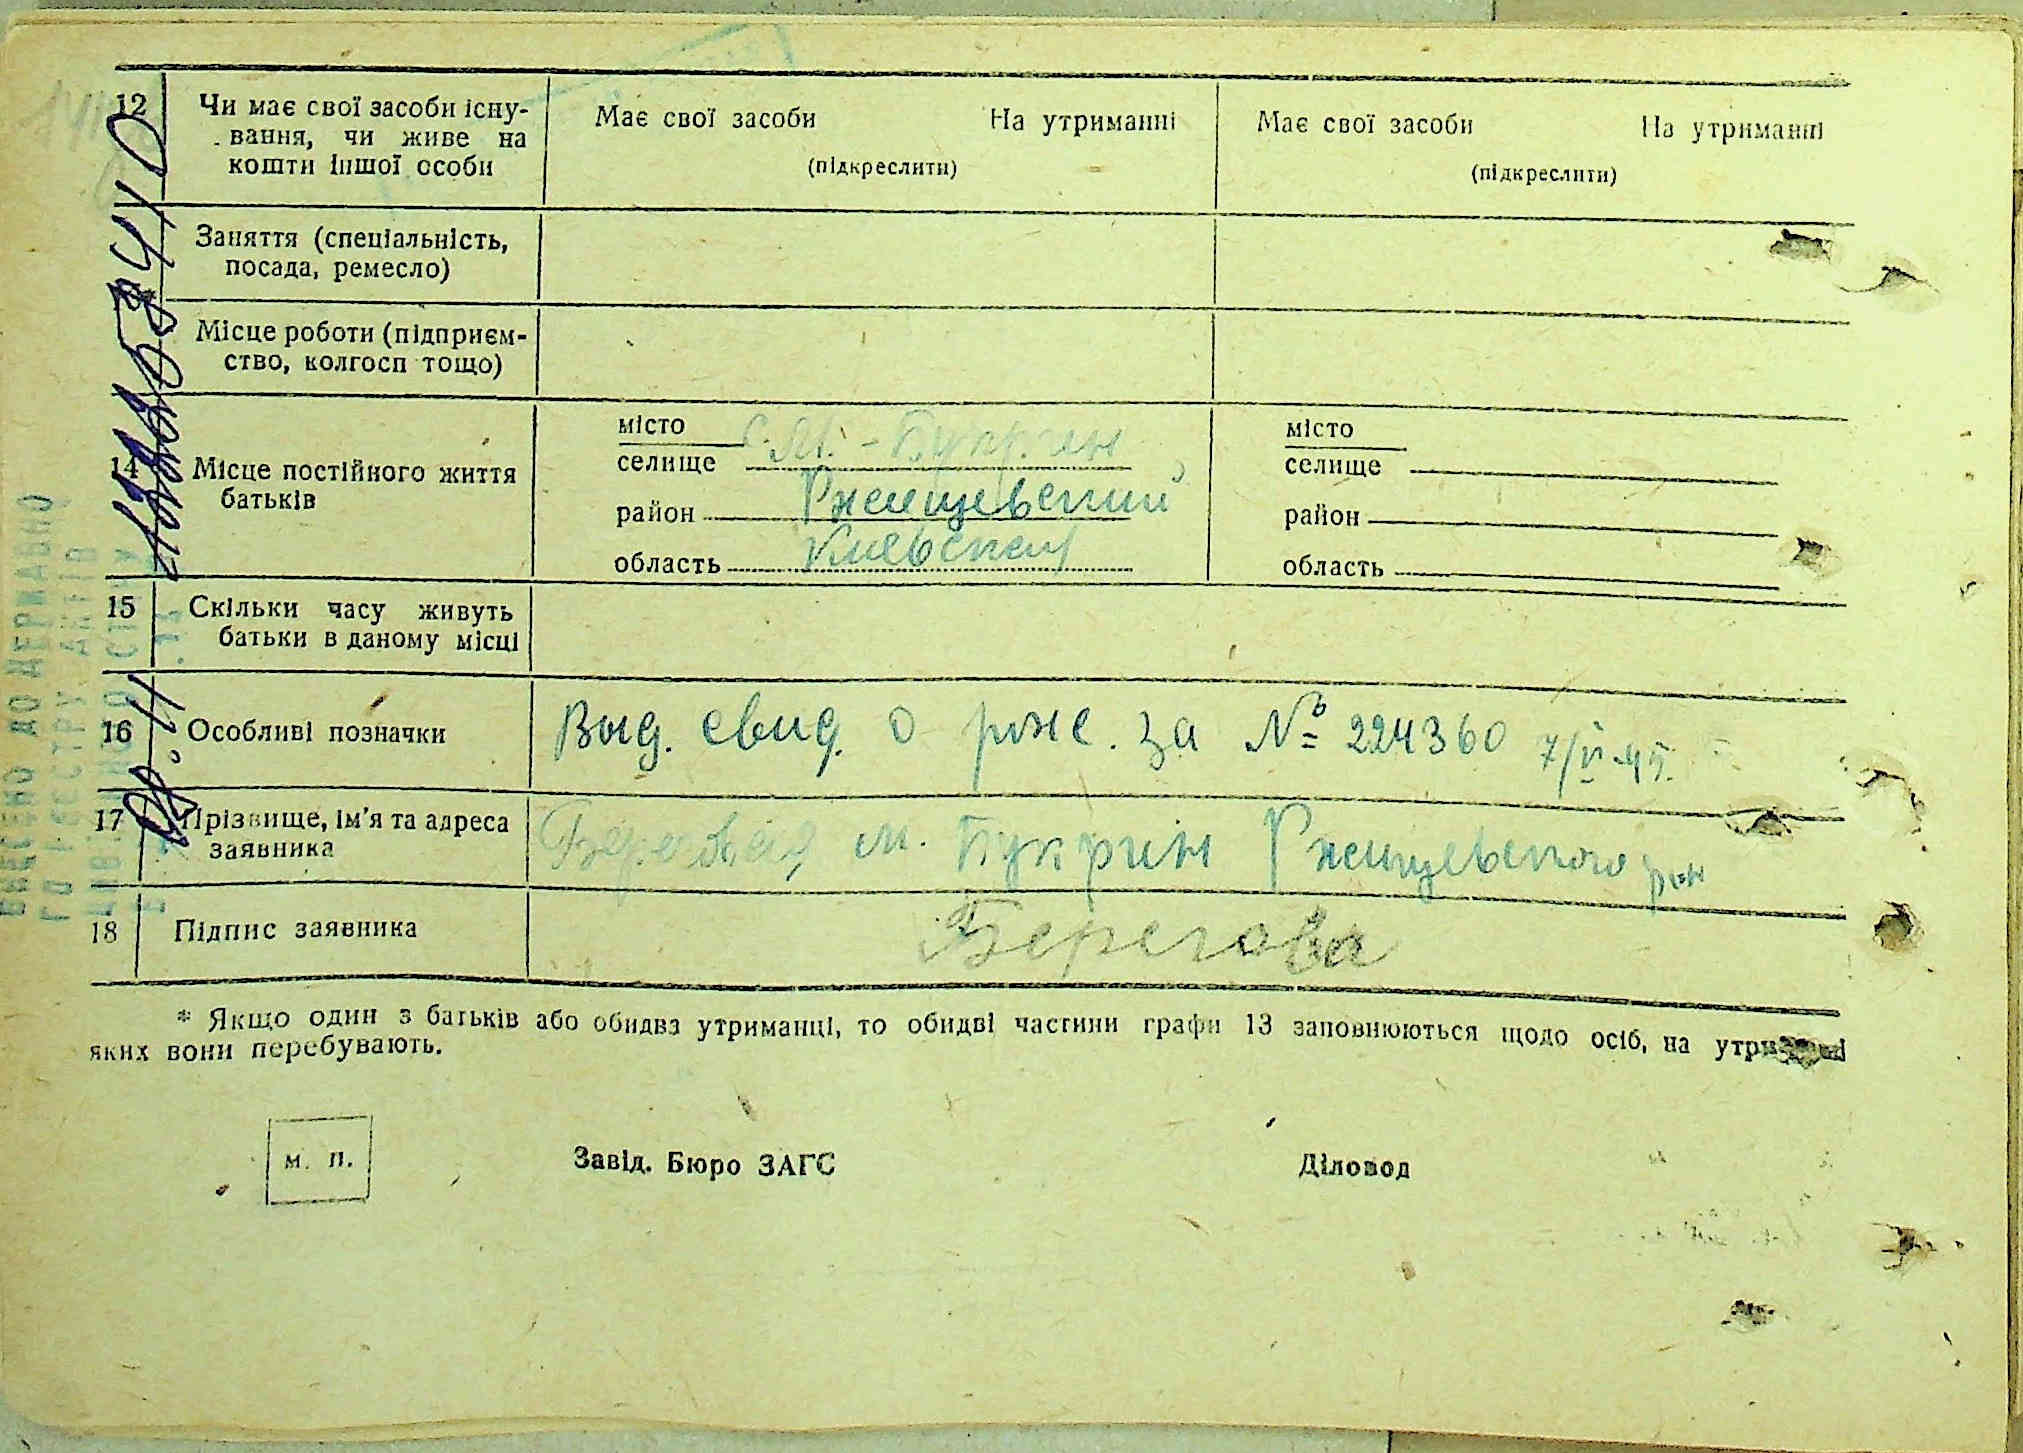 12 Чи має свої засоби існу-
вання, чи живе на
кошти іншої особи
Має свої засоби На утриманні
(підкреслити)
Має свої засоби На утриманні
(підкреслити)
Заняття (спеціальність,
посада, ремесло)
Місце роботи (підприєм-
ство, колгосп тощо)
14 Місце постійного життя
батьків
місто
селище с. М. - Букрин
район Ржищевский
область Киевская
місто
селище
район
область
15 Скільки часу живуть
батьки в даному місці
16 Особливі позначки
Выд. свид. о рожс. за № 224360 7/VI-45.
17 Прізвище, ім'я та адреса
заявника
Береговая м. Букрин Ржищевского рон
18 Підпис заявника
Берегова
* Якщо один з батьків або обидва утриманці, то обидві частини графи 13 заповнюються щодо осіб, на утриманні
яких вони перебувають.
м. п.
Завід. Бюро ЗАГС
Діловод